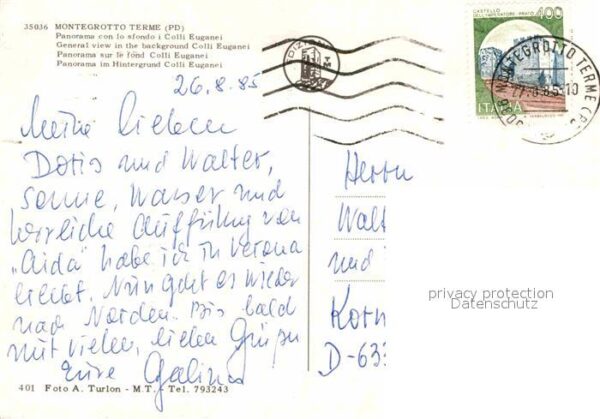 35036 MONTEGROTTO TERME (PD)
Panorama con lo sfondo i Colli Euganei
General view in the background Colli Euganei
Panorama sur le fond Colli Euganei
Panorama im Hintergrund Colli Euganei
26.8.85
Meine Lieben
Doris und Walter,
Sonne, Wasser und
herrliche Aufführung von
"Aida" habe ich in Verona
erlebt. Nun geht es wieder
nach Norden. Bis bald
mit vielen, lieben Grüßen
Eure Galina
401 Foto A. Turlon - M.T. - Tel. 793243
EDIZIONI
TM
CASTELLO
DELL'IMPERATORE PRATO
400
ITALIA
MONTEGROTTO TERME (P
27.8.85.10
Herrn
Walt
und
Korn
D-633
privacy protection
Datenschutz